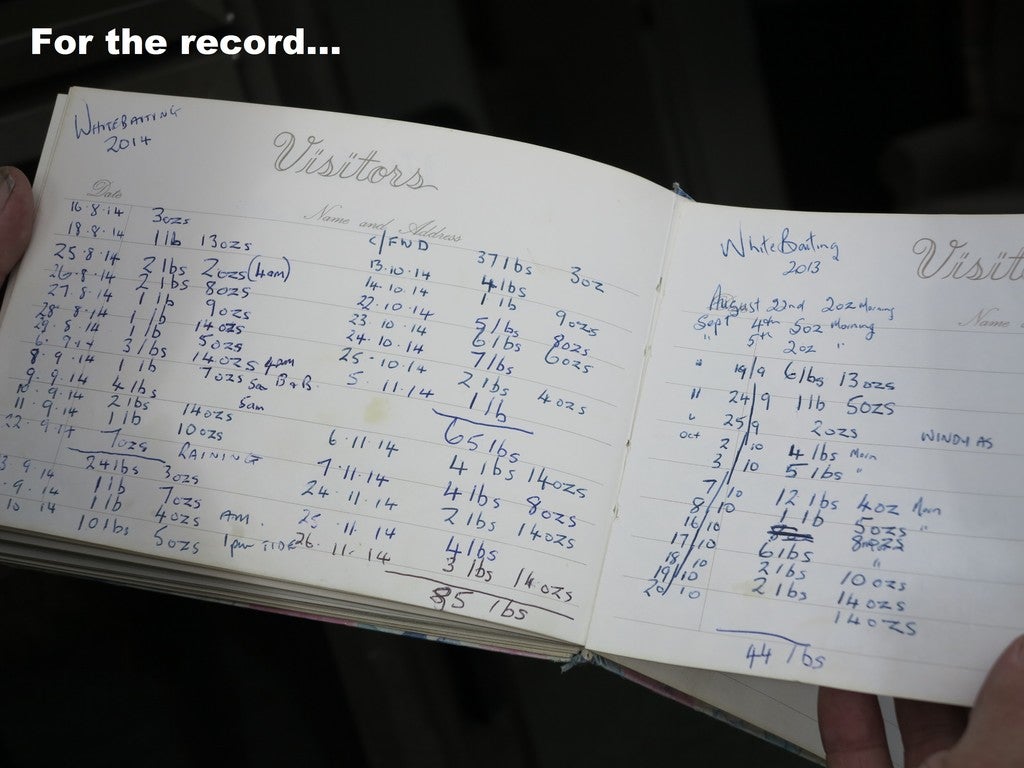 For the record...
WHITEBAITING
2014
Visitors
Date
Name and Address
16.8.14 3ozs
18.8.14 1 lb 13ozs
25.8.14 2 lbs 2ozs (4am)
26.8.14 2 lbs 8ozs
27.8.14 1 lb 9ozs
28.8.14 1 lb 14ozs
29.8.14 1 lb 5ozs
6.9.14 3 lbs 14ozs 4pm
8.9.14 1 lb 7ozs 5am B&B.
9.9.14 4 lbs 5am
10.9.14 2 lbs 14ozs
11.9.14 1 lb 10ozs
22.9.14 7ozs RAINING
24 lbs 3ozs
3.9.14 1 lb 7ozs
.9.14 1 lb 4ozs AM.
10 14 10 lbs 5ozs 1pm TIDE
C/FWD 37 lbs 3oz
13.10.14 4 lbs
14.10.14 1 lb 9ozs
22.10.14 5 lbs 8ozs
23.10.14 6 lbs 6ozs
24.10.14 7 lbs
25.10.14 2 lbs 4ozs
5.11.14 1 lb
65 lbs
6.11.14 4 lbs 14ozs
7.11.14 4 lbs 8ozs
24.11.14 2 lbs 14ozs
25.11.14 4 lbs
26.11.14 3 lbs 14ozs
85 lbs
WhiteBaiting
2013
Visit
Name
August 22nd 2oz Morning
Sept 4th 5oz Morning
" 5th 2oz "
" 19/9 6 lbs 13ozs
" 24/9 1 lb 5ozs
" 25/9 2ozs WINDY AS
Oct 2/10 4 lbs Morn
3/10 5 lbs "
7/10 12 lbs 4oz Morn
8/10 1 lb 5ozs "
16/10
17/10 6 lbs "
18/10 2 lbs 10ozs
19/10 2 lbs 14ozs
20/10 14ozs
44 lbs